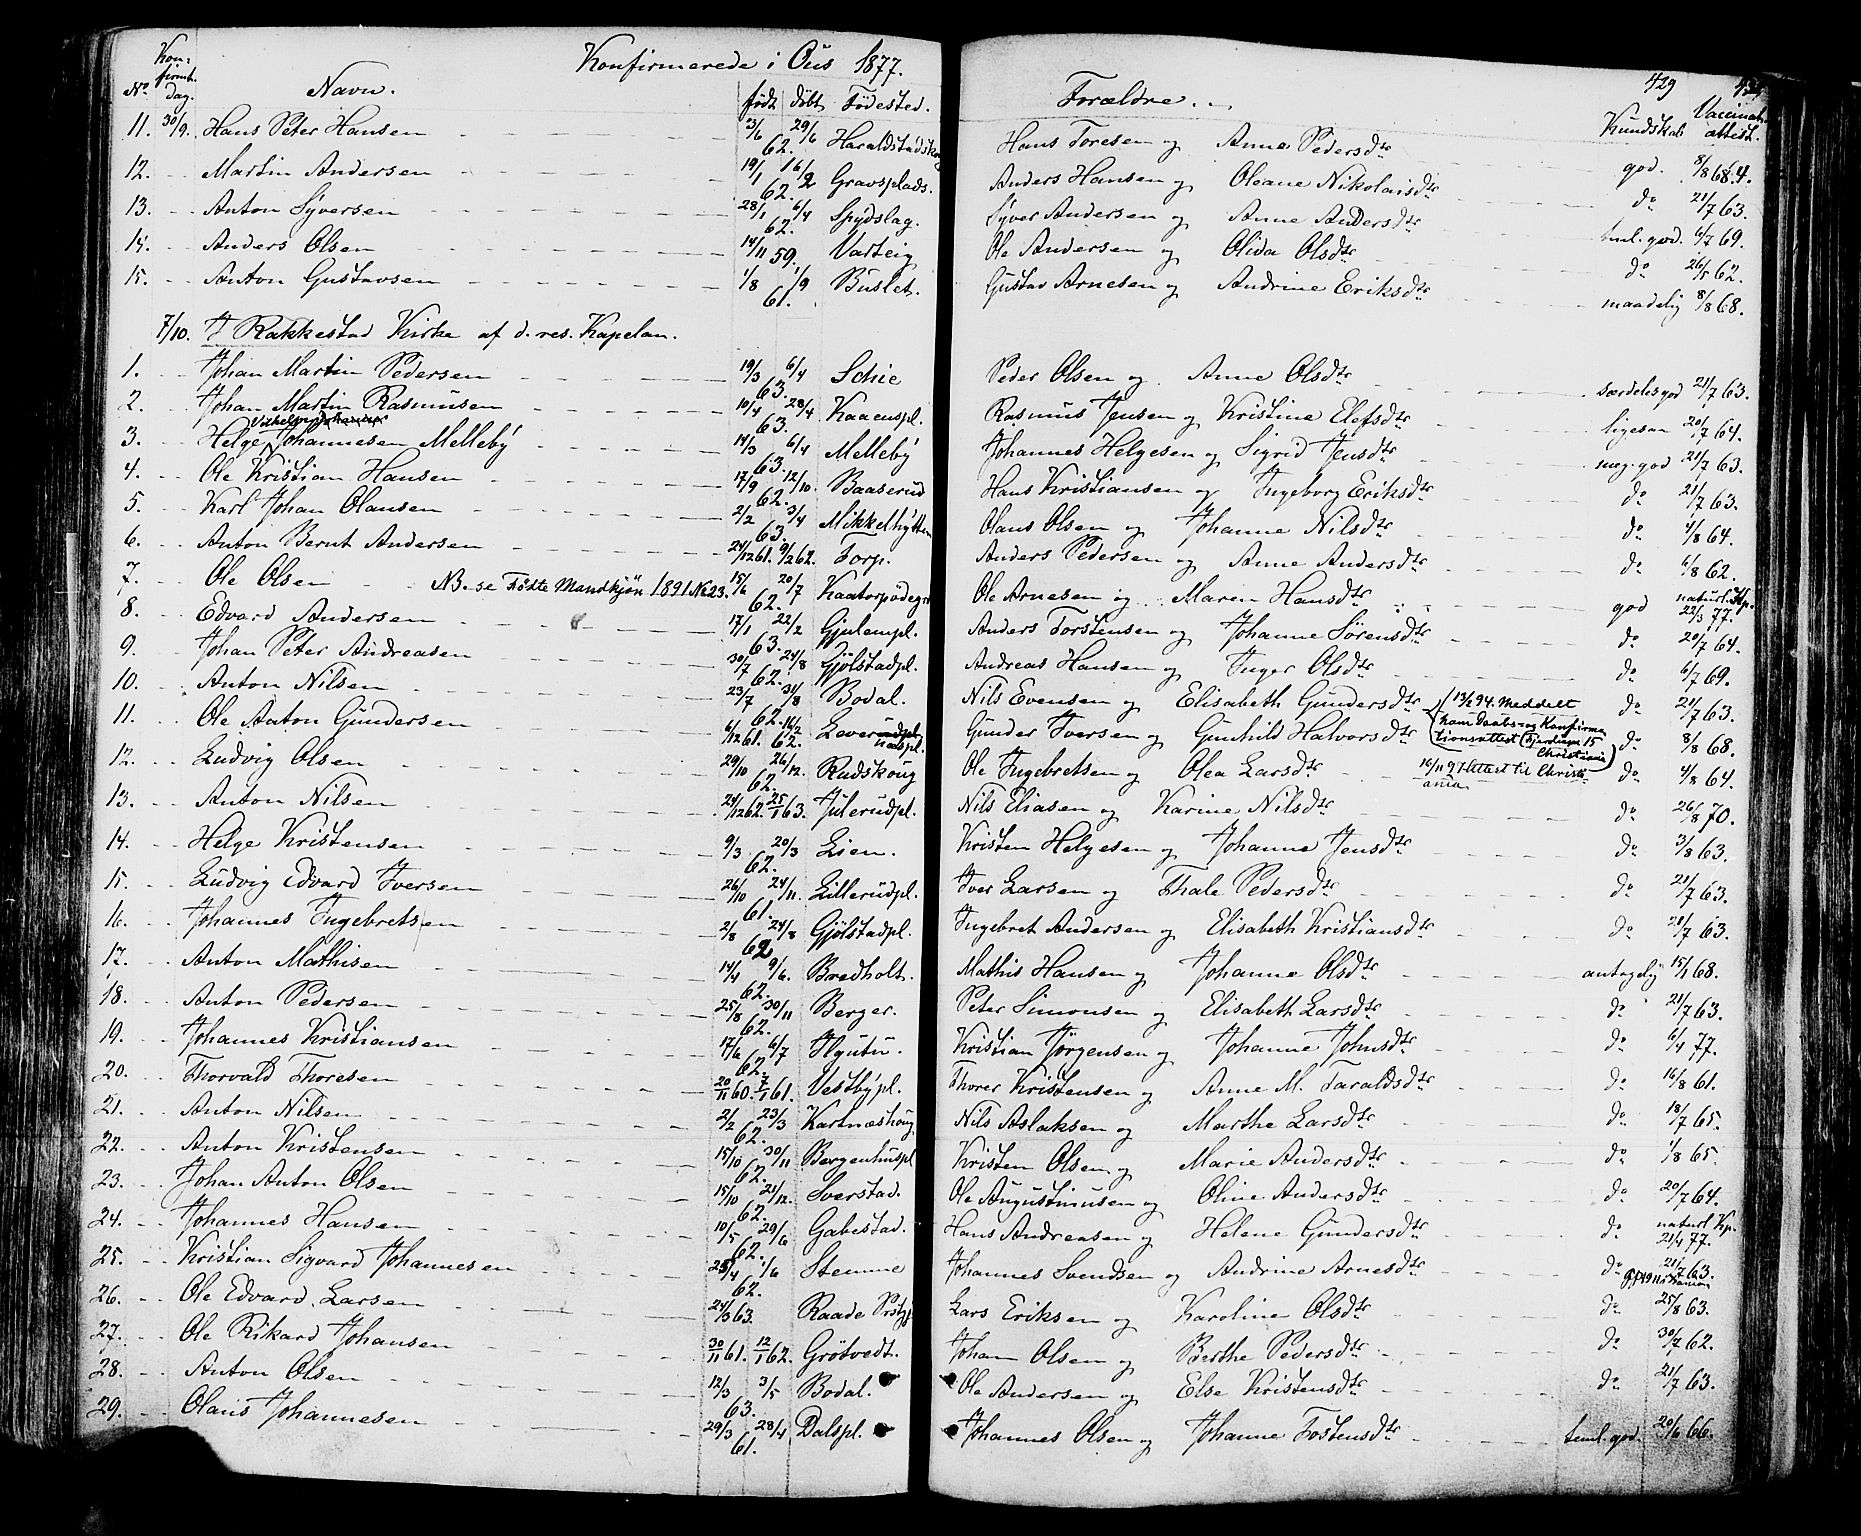 Konfirmerede i Öus 1877.
429
No. Kon-firmt. Dag. Navn. født døbt Fødested. Forældre. Kundskab Vaccinat. attest.
11. 30/9. Hans Peter Hansen 3/6 29/6 62. Haraldstadskoug Hans Toresen og Anna Pedersdtr god. 8/8 68.
12. Martin Andersen 19/1 16/2 62. Gravsplads. Anders Hansen og Oleane Nikolaisdtr do 21/7 63.
13. Anton Syversen 28/1 6/4 62. Spydslag. Syver Andersen og Anne Andersdtr teml. god. 6/7 69.
14. Anders Olsen 14/11 59. Varteig Ole Andersen og Olida Olsdtr do 26/5 62.
15. Anton Gustavsen 1/8 1/9 61. Buslet. Gustav Arnesen og Andrine Eriksdtr maadelig 8/8 68.
7/10. I Rakkestad Kirke af d. res. Kapelan.
1. Johan Martin Pedersen 19/3 6/4 63. Schie Peder Olsen og Anne Olsdtr særdeles god 21/7 63.
2. Johan Martin Rasmusen 10/4 28/4 63. Kaaenspl. Rasmus Jensen og Kristine Elefsdtr ligesaa 20/7 64.
3. Helge Johannesen Melleby 14/3 6/4 63. Melleby Johannes Helgesen og Sigrid Jensdtr meg. god 21/7 63.
4. Ole Kristian Hansen 17/9 12/10 62. Baaserud Hans Kristiansen og Ingeborg Eriksdtr do 21/7 63.
5. Karl Johan Olausen 2/2 3/4 63. Mikkelhytten Olaus Olsen og Johanne Nilsdtr do 4/8 64.
6. Anton Bernt Andersen 24/12 61. 9/2 62. Torp. Anders Pedersen og Anne Andersdtr do 6/8 62.
7. Ole Olsen NB. se Fødte Mandkjøn 1891 No 23. 15/6 20/7 62. Kaatorpødeg. Ole Arnesen og Maren Hansdtr god naturl. Kp. 22/3 77.
8. Edvard Andersen 17/1 22/2 63. Gjulempl. Anders Torstensen og Johanne Sørensdtr do 20/7 64.
9. Johan Peter Andreasen 30/7 24/8 62. Gjølstadpl. Andreas Hansen og Inger Olsdtr do 6/7 69.
10. Anton Nilsen 23/7 31/8 62. Bodal. Nils Evensen og Elisabeth Gundersdtr do 21/7 63.
13/2 94. Meddelt ham Daabs- og Konfirmationsattest 15 Christiania
11. Ole Anton Gundersen 6/12 61. 16/2 62. Gunder Iversen og Gunhild Halvorsdtr do 8/8 68.
12. Ludvig Olsen 29/10 26/12 62. Rudskoug Ole Ingebretsen og Olea Larsdtr 16/11 97 Attest til Christiania do 4/8 64.
13. Anton Nilsen 24/12 62. 25/1 63. Julerudpl. Nils Eliasen og Karine Nilsdtr do 26/8 70.
14. Helge Kristensen 9/3 20/3 62. Lien. Kristen Helgesen og Johanne Jensdtr do 3/8 63.
15. Ludvig Edvard Iversen 26/10 24/11 61. Lillerudpl. Iver Larsen og Thale Pedersdtr do 21/7 63.
16. Johannes Ingebretsen 2/8 24/8 62 Gjølstadpl. Ingebret Andersen og Elisabeth Kristiansdtr do 21/7 63.
17. Anton Mathisen 14/4 9/6. 62. Bredholt. Mathis Hansen og Johanne Olsdtr antagelig 15/1 68.
18. Anton Pedersen 25/8 30/11 62. Berger. Peter Simonsen og Elisabeth Larsdtr do 21/7 63.
19. Johannes Kristiansen 17/6 6/7 62. Kristian Jørgensen og Johanne Johnsdtr do 6/4 77.
20. Thorvald Thoresen 20/11 60. 7/1 61. Vestbypl. Thorer Kristensen og Anne M. Taraldsdtr do 16/8 61.
21. Anton Nilsen 2/2 23/3 62. Kartnæskoug Nils Aslaksen og Marthe Larsdtr do 18/7 65.
22. Anton Kristensen 15/10 30/11 62. Bergenhuspl Kristen Olsen og Marie Andersdtr do 1/8 65.
23. Johan Anton Olsen 15/10 21/12. 62. Sverstad. Ole Augustinusen og Oline Andersdtr do 20/7 64.
24. Johannes Hansen 10/5 29/6 62. Gabestad. Hans Andreasen og Helene Gundersdtr do naturl. Kp. 21/4 77.
25. Kristian Sigvard Johannesen 25/4 1/6 62. Stemme Johannes Svendsen og Andrine Arnesdtr do 21/7 63.
26. Ole Edvard Larsen 24/3 63. Raade Prstgj. Lars Eriksen og Karoline Olsdtr do 25/8 63.
27. Ole Rikard Johansen 30/11 61. 12/1 62. Grøtvedt. Johan Olsen og Berthe Pedersdtr do 30/7 62.
28. Anton Olsen 12/3 3/5 63. Bodal. Ole Andersen og Else Kristensdtr do 21/7 63.
29. Olaus Johannesen 29/3 28/4 61. Dalspl. Johannes Olsen og Johanne Tostensdtr teml. god. 20/6 66.